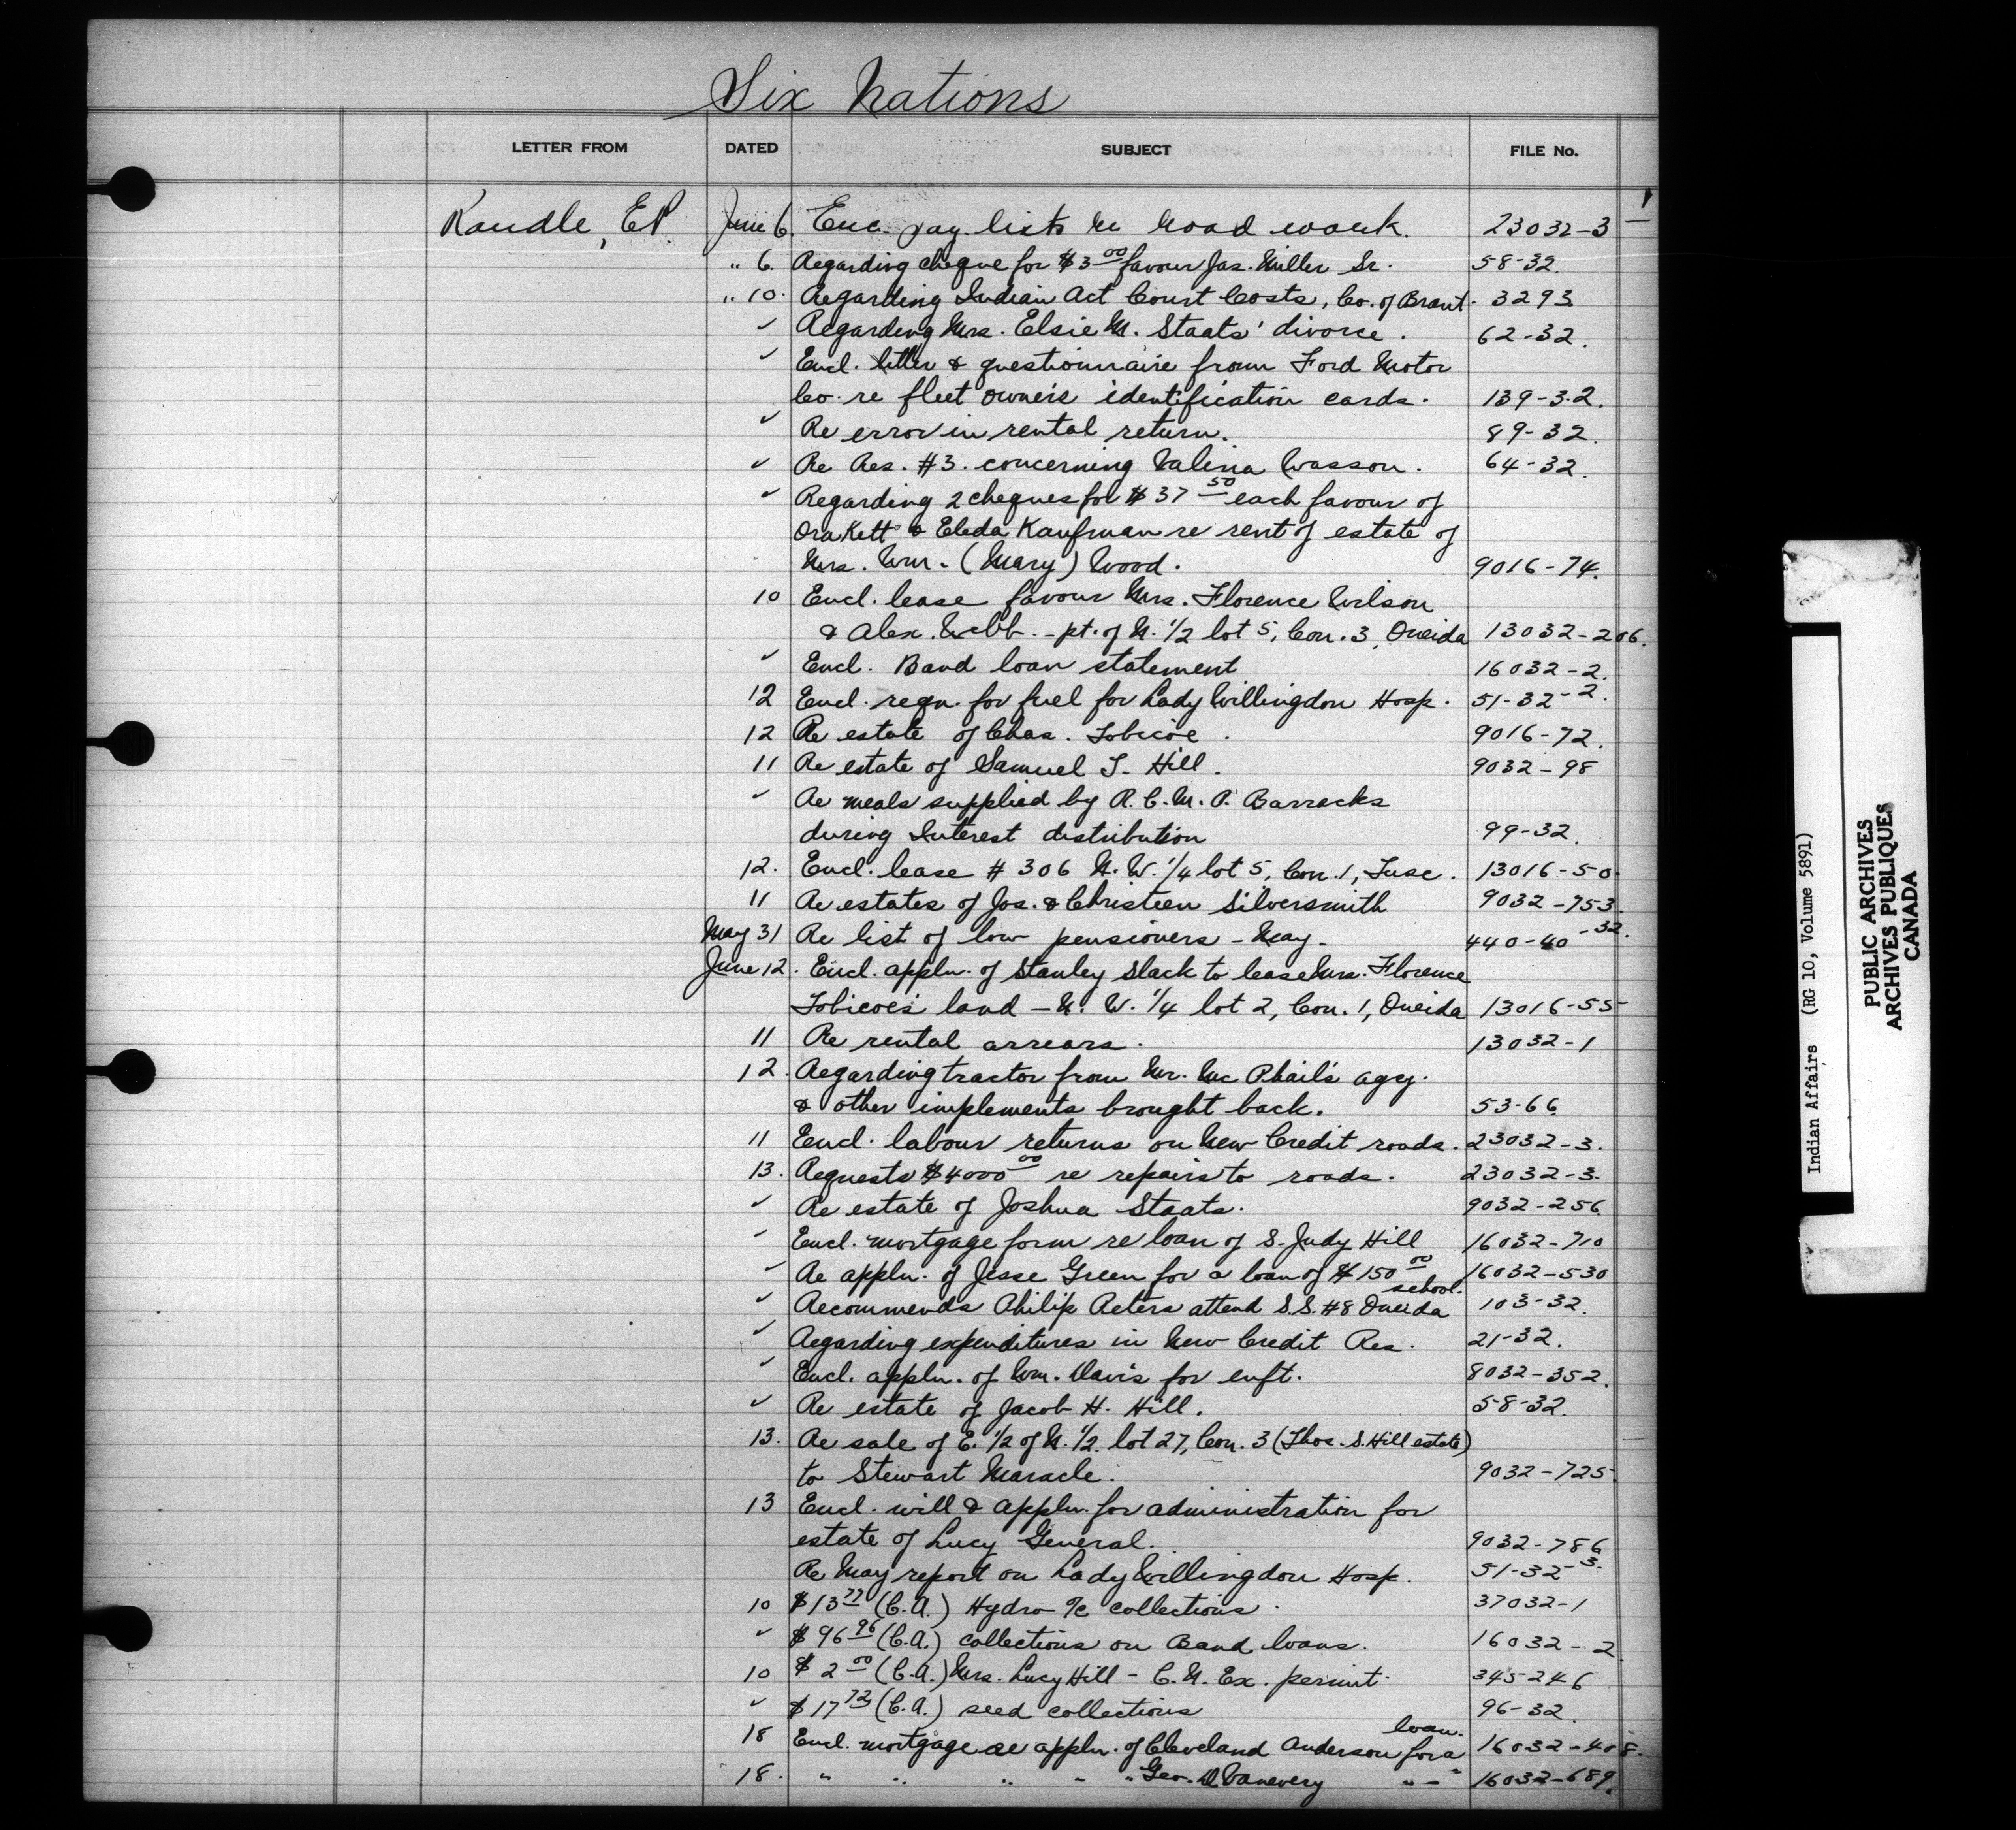 Six Nations
LETTER FROM DATED SUBJECT FILE No.
Randle, E.P. June 6. Enc. pay lists re road work. 23032-3
" 6. Regarding cheque for $3 00 favour Jas. Miller Sr. 58-32.
" 10. Regarding Indian Act Court Costs, Co. of Brant. 3293
✓ Regarding Mrs. Elsie M. Staats' divorce. 62-32.
✓ Encl. letter & questionnaire from Ford Motor
Co. re fleet owner's identification cards. 139-3-2.
✓ Re error in rental return. 89-32.
✓ Re Res. #3. concerning Wasson. 64-32.
✓ Regarding 2 cheques for $37 50 each favour of
Ora Kett & Eleda Kaufman re rent of estate of
Mrs. Wm. (Mary) Wood. 9016-74.
10 Encl. lease favour Mrs. Florence Wilson
& Alex. Webb. - pt. of N. 1/2 lot 5, Con. 3, Oneida 13032-206.
✓ Encl. Band loan statement 16032-2.
12 Encl. reqn. for fuel for Lady Willingdon Hosp. 51-32-2.
12 Re estate of Chas. Tobicoe. 9016-72.
11 Re estate of Samuel T. Hill. 9032-98
✓ Re meals supplied by R.C.M.P. Barracks
during Interest distribution 99-32.
12. Encl. lease # 306 N.W. 1/4 lot 5, Con. 1, Tusc. 13016-50.
11 Re estates of Jos. & Christeen Silversmith 9032-753.
May 31 Re list of low pensioners - May. 440-40-32.
June 12. Encl. appln. of Stanley Slack to lease Mrs. Florence
Tobicoe's land - N.W. 1/4 lot 2, Con. 1, Oneida 13016-55
11 Re rental arrears. 13032-1
12. Regarding tractor from Mr. McPhail's agcy.
& other implements brought back. 53-66.
11 Encl. labour returns on New Credit roads. 23032-3.
13. Requests $4000 00 re repairs to roads. 23032-3.
✓ Re estate of Joshua Staats. 9032-256.
✓ Encl. mortgage form re loan of S. Judy Hill 16032-710
✓ Re appln. of Jesse Green for a loan of $150 00 16032-530
✓ Recommends Philip Peters attend S.S. #8 Oneida school. 103-32.
✓ Regarding expenditures in New Credit Res. 21-32.
✓ Encl. appln. of Wm. Davis for enft. 8032-352.
✓ Re estate of Jacob H. Hill. 58-32.
13. Re sale of E. 1/2 of N. 1/2 lot 27, Con. 3 (Thos. S. Hill estate)
to Stewart Maracle. 9032-725.
13 Encl. will & appln. for administration for
estate of Lucy General. 9032-786
Re May report on Lady Willingdon Hosp. 51-32-3.
10 $13 77 (C.A.) Hydro a/c collections. 37032-1
✓ $96 96 (C.A.) collections on Band loans. 16032-2
10 $2 00 (C.A.) Mrs. Lucy Hill - C.N. Ex. permit. 345-246
✓ $17 72 (C.A.) seed collections 96-32.
18 Encl. mortgage re appln. of Cleveland Anderson for a loan. 16032-408.
18. " " " " " Geo. D. Vanevery " - " 16032-689.
Indian Affairs (RG 10, Volume 5891)
PUBLIC ARCHIVES
ARCHIVES PUBLIQUES
CANADA